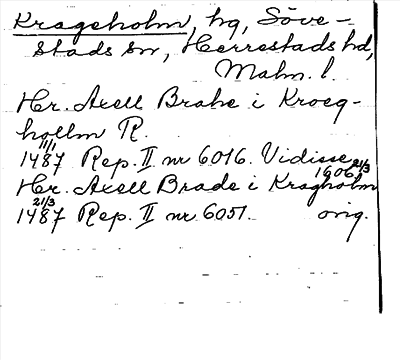 Krageholm, hg, Söve-
stads sn, Herrestads hd,
Malm. l.
Hr. Axell Brahe i Kroeg-
hollm R.
11/1 1487 Rep. II nr 6016. Vidisse 21/3 1606
Hr. Axell Brade i Kragholm
21/3 1487 Rep. II nr 6051. orig.